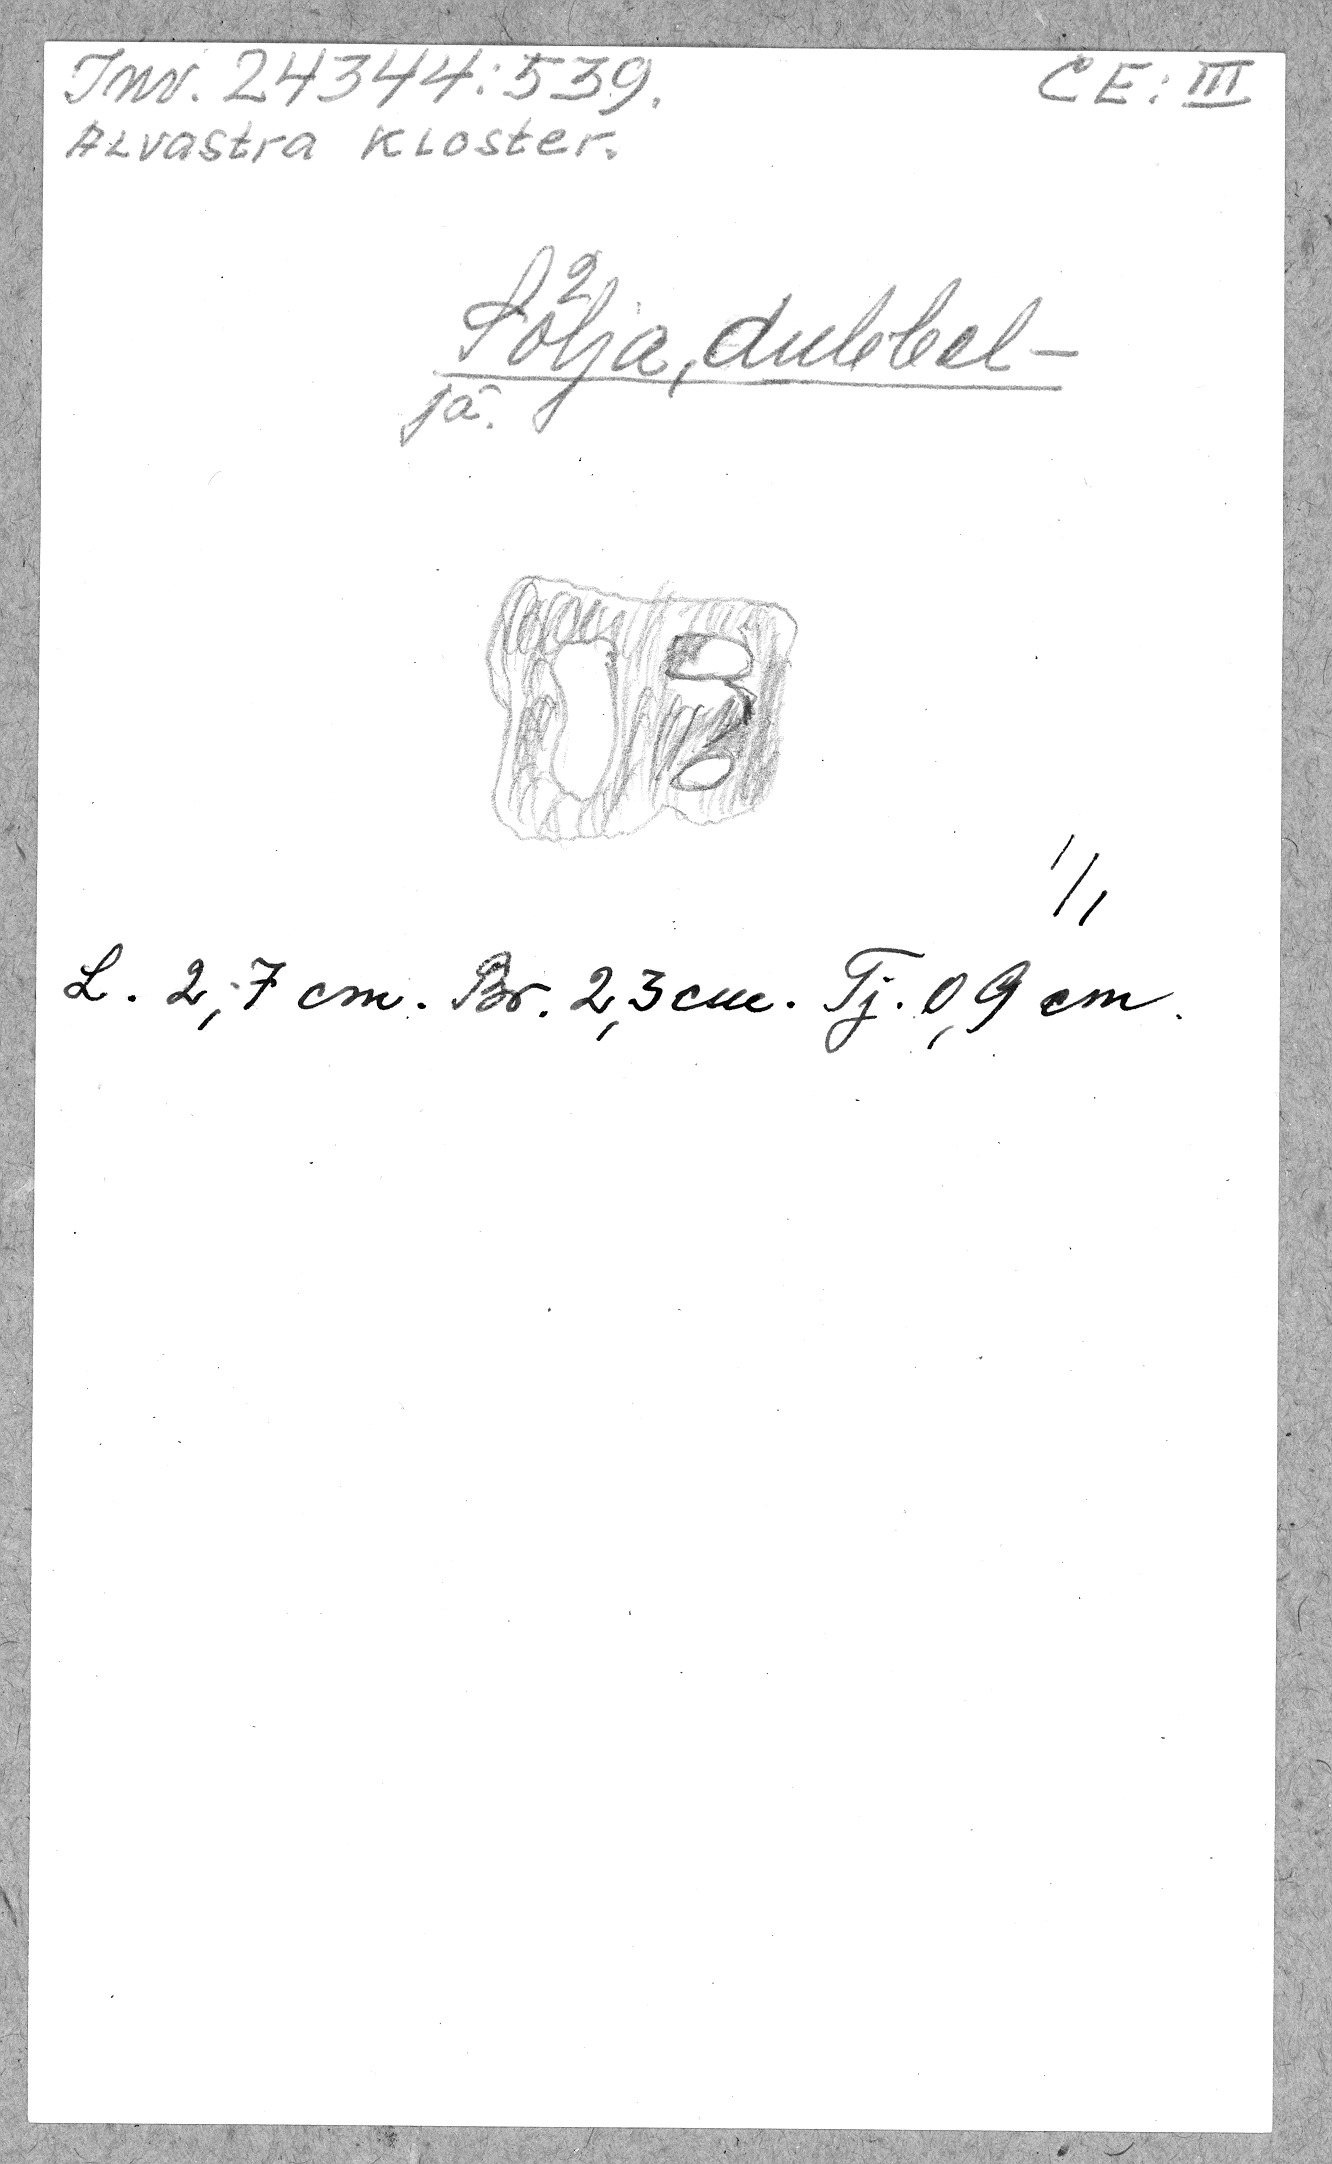 Inv. 24344:539. CE: III
Alvastra Kloster.
Sölja, dubbel-
jä.
1/1
L. 2,7 cm. Br. 2,3 cm. Tj. 0,9 cm.